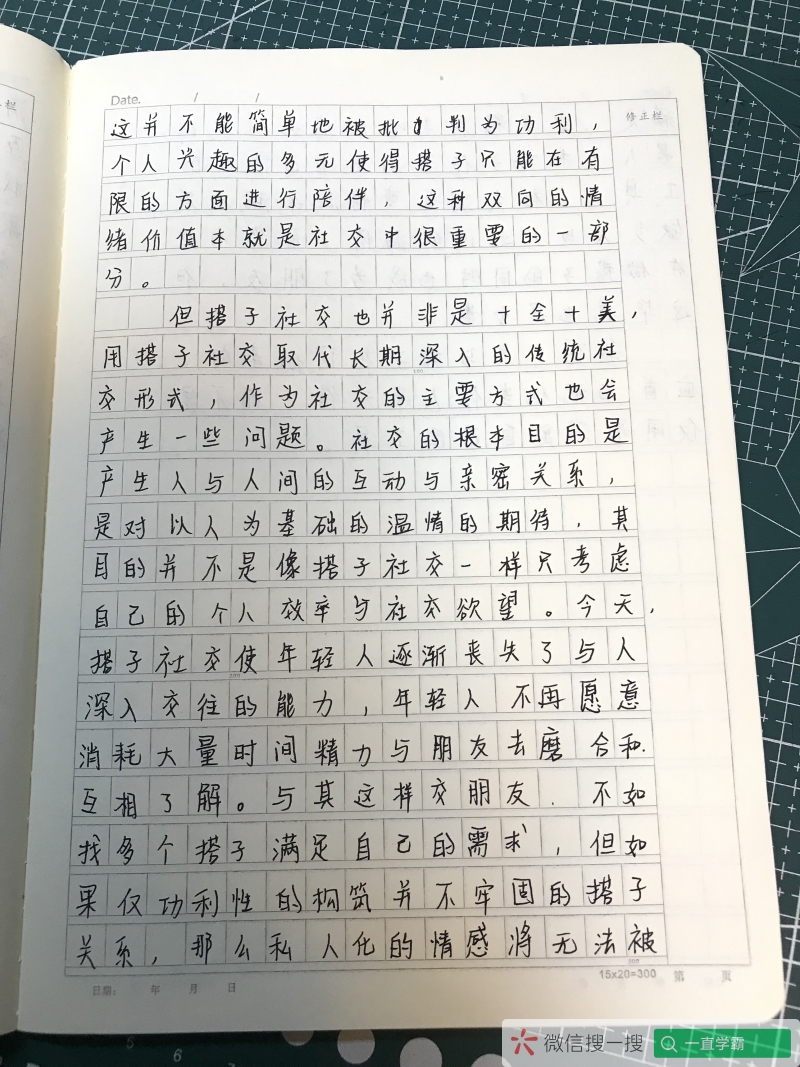 Date. / /
修正栏
这并不能简单地被批判为功利，
个人兴趣的多元使得搭子只能在有
限的方面进行陪伴，这种双向的情
绪价值本就是社交中很重要的一部
分。
但搭子社交也并非是十全十美，
用搭子社交取代长期深入的传统社
交形式，作为社交的主要方式也会
产生一些问题。社交的根本目的是
产生人与人间的互动与亲密关系，
是对以人为基础的温情的期待，其
目的并不是像搭子社交一样只考虑
自己的个人效率与社交欲望。今天，
搭子社交使年轻人逐渐丧失了与人
深入交往的能力，年轻人不再愿意
消耗大量时间精力与朋友去磨合和
互相了解。与其这样交朋友，不如
找多个搭子满足自己的需求，但如
果仅功利性的构筑并不牢固的搭子
关系，那么私人化的情感将无法被
15x20=300 第 页
日期： 年 月 日
5 6
微信搜一搜 一直学霸